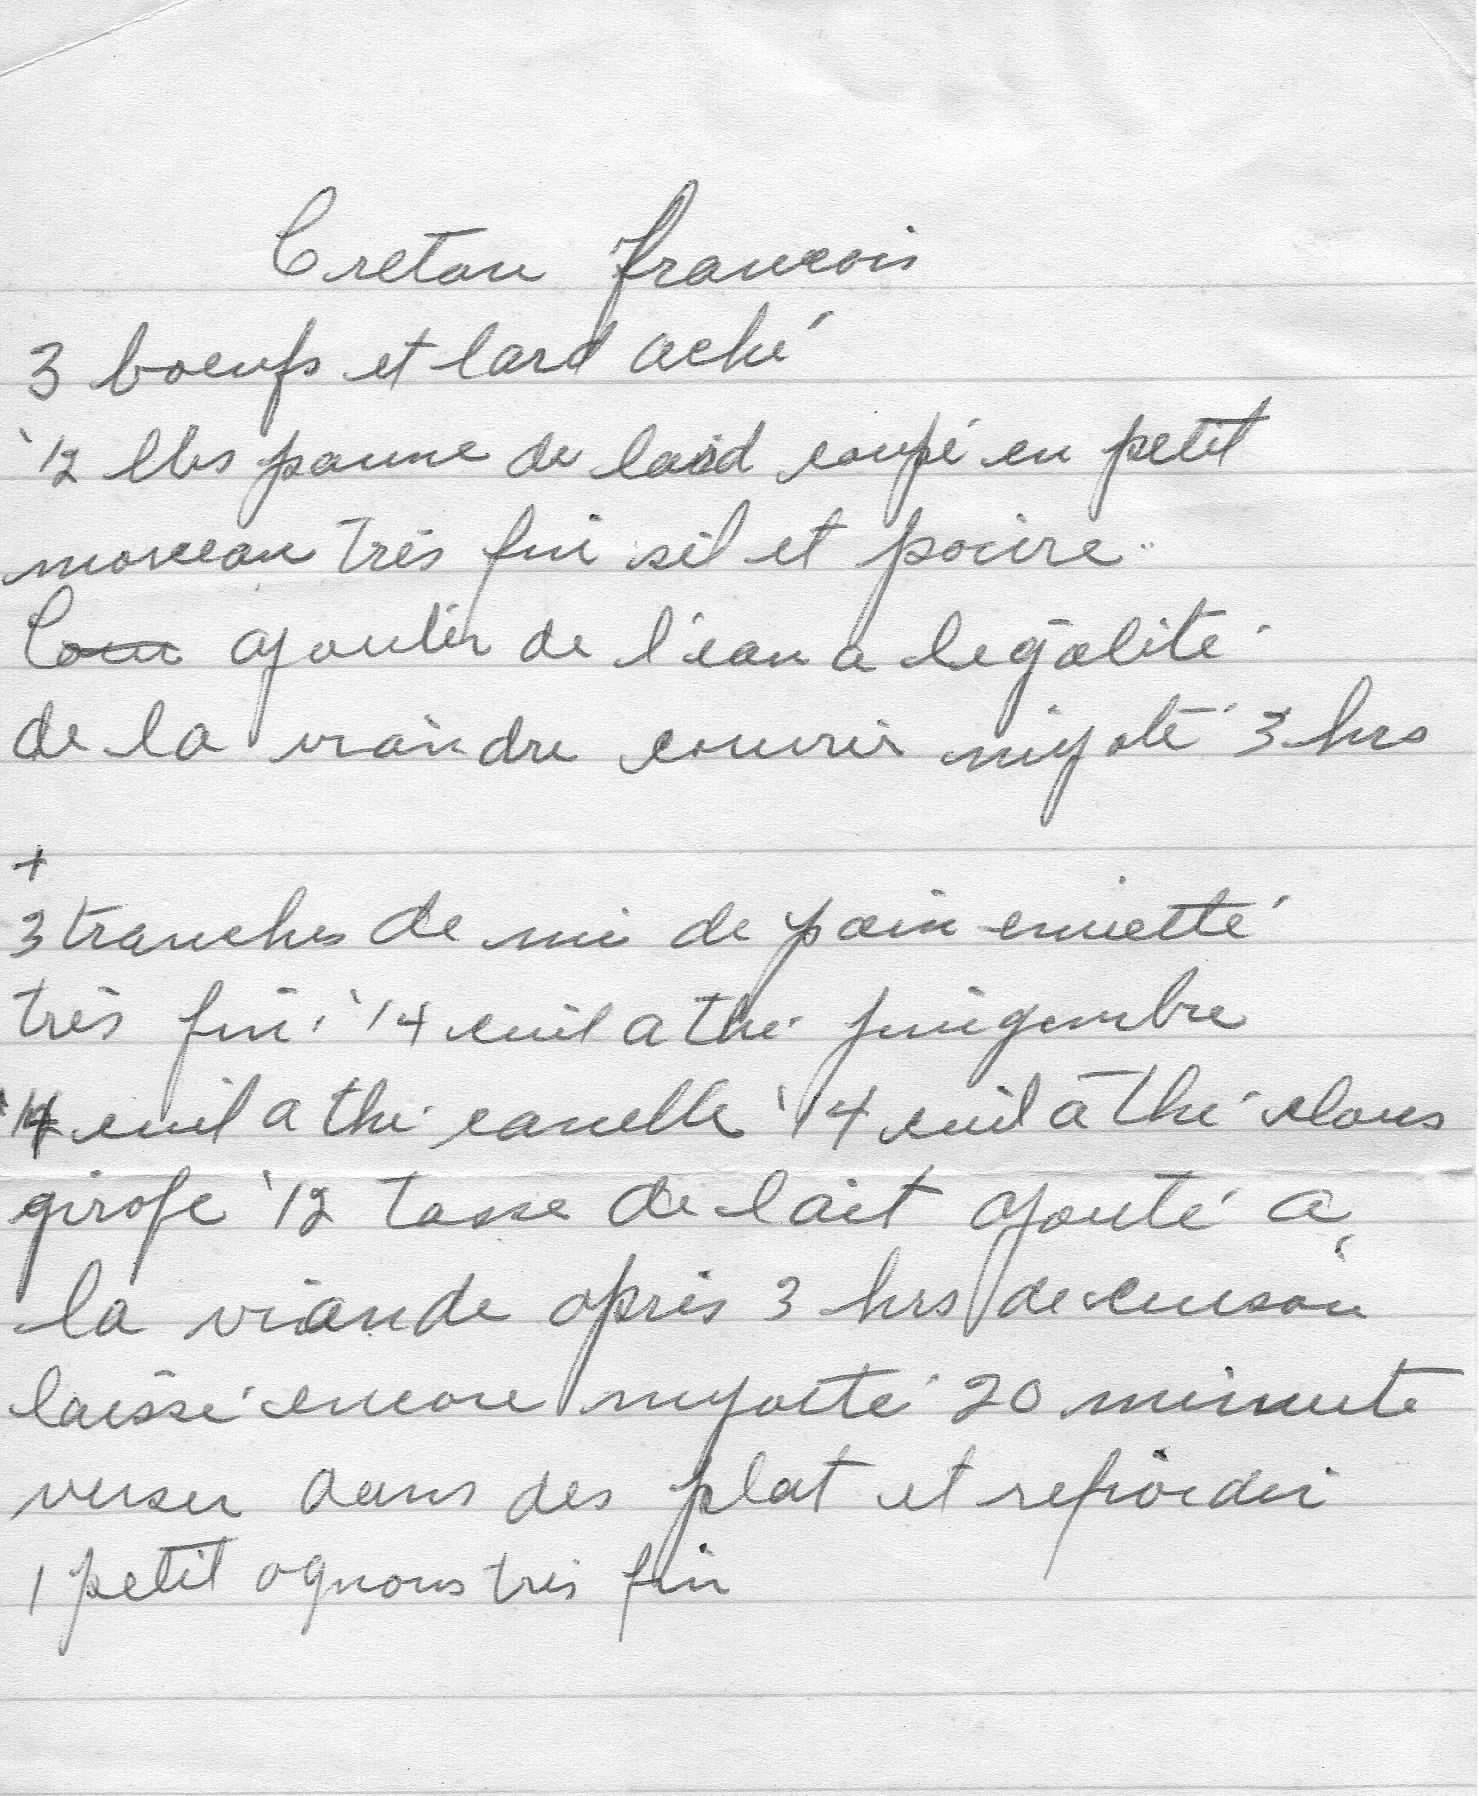 Creton francois
3 boeufs et lard aché
1/2 lbs panne de lard coupé en petit
morceau très fin sel et poivre
Cou ajouter de l'eau a legalité
de la viandre couvrir mijoté 3 hrs
+
3 tranches de mi de pain emietté
très fin. 1/4 cuil a thé gingembre
1/4 cuil a thé canelle 1/4 cuil a thé clous
girofe 1/2 tasse de lait ajouté a
la viande après 3 hrs de cuison
laissé encore myoté 20 minute
verser dans des plat et refroidir
1 petit ognons très fin